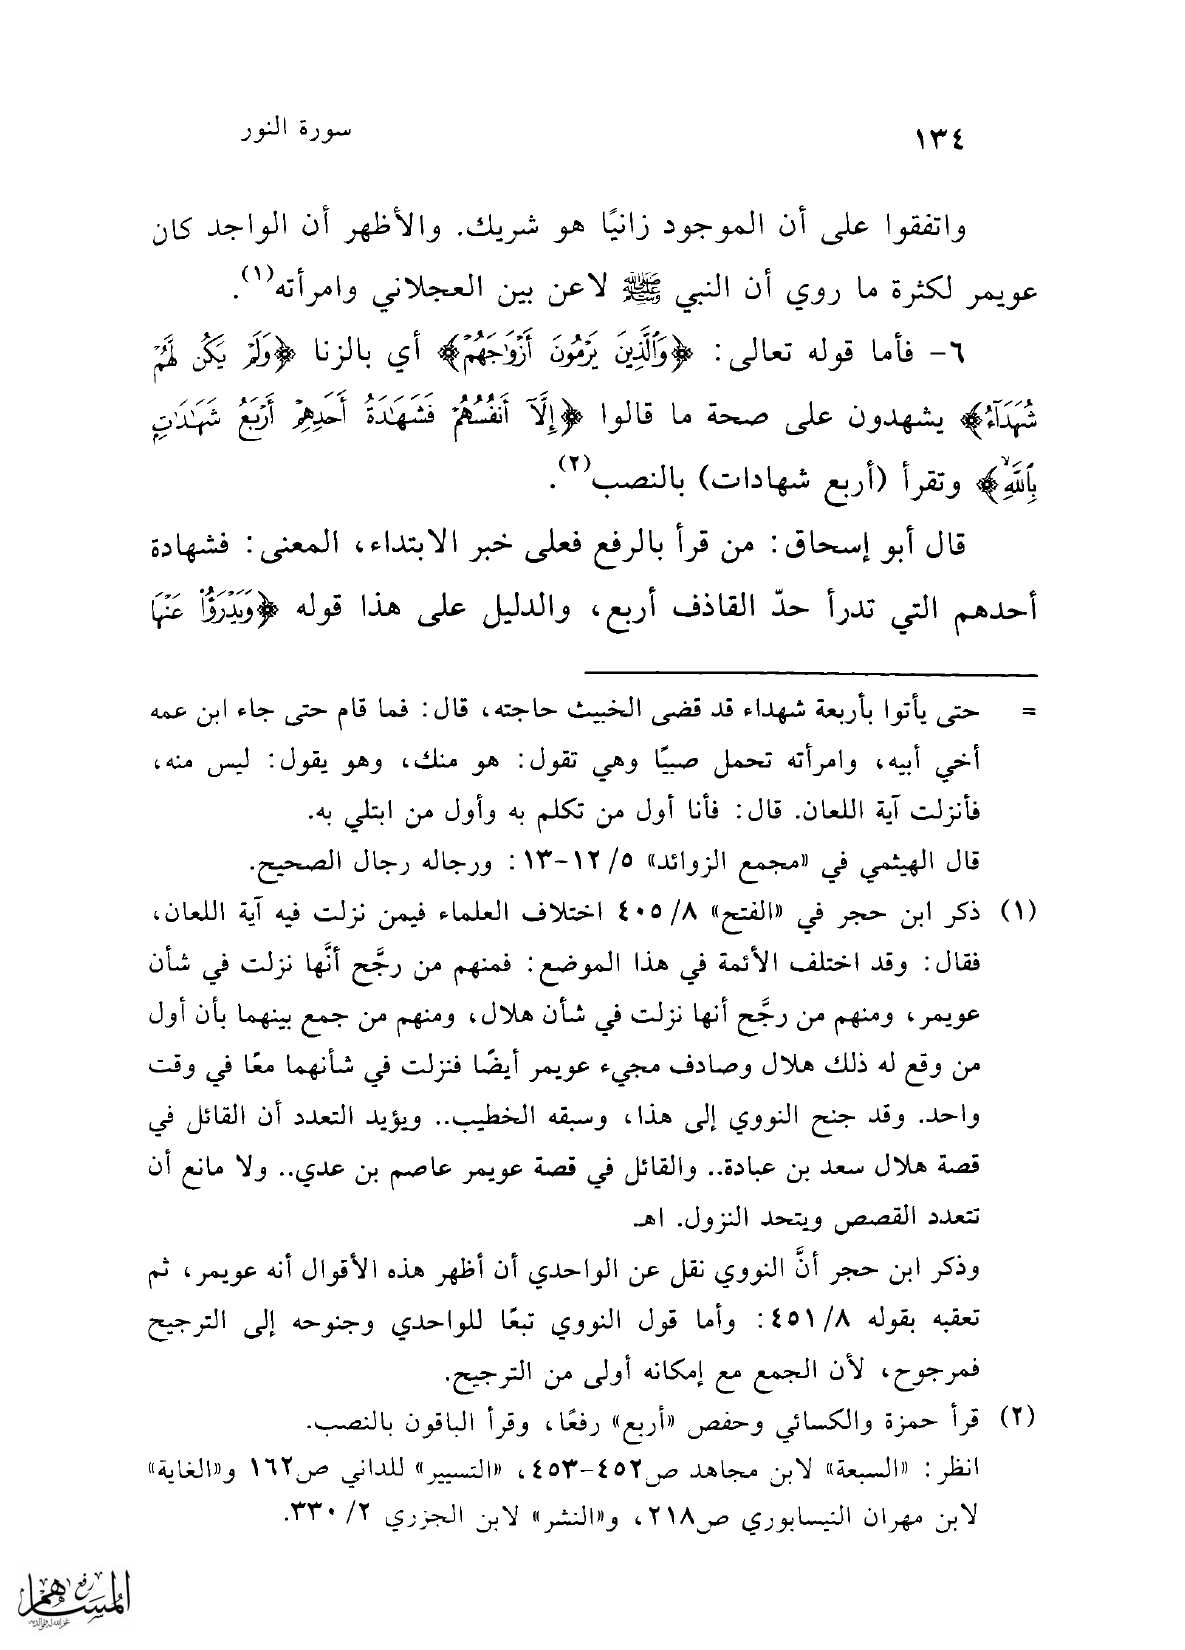 ١٣٤ سورة النور
واتفقوا على أن الموجود زانيًا هو شريك. والأظهر أن الواجد كان
عويمر لكثرة ما روي أن النبي ﷺ لاعن بين العجلاني وامرأته(١).
٦- فأما قوله تعالى: ﴿وَالَّذِينَ يَرْمُونَ أَزْوَاجَهُمْ﴾ أي بالزنا ﴿وَلَمْ يَكُن لَّهُمْ
شُهَدَاءُ﴾ يشهدون على صحة ما قالوا ﴿إِلَّا أَنفُسُهُمْ فَشَهَادَةُ أَحَدِهِمْ أَرْبَعُ شَهَادَاتٍ
بِاللَّهِ﴾ وتقرأ (أربع شهادات) بالنصب(٢).
قال أبو إسحاق: من قرأ بالرفع فعلى خبر الابتداء، المعنى: فشهادة
أحدهم التي تدرأ حدّ القاذف أربع، والدليل على هذا قوله ﴿وَيَدْرَؤُا عَنْهَا
= حتى يأتوا بأربعة شهداء قد قضى الخبيث حاجته، قال: فما قام حتى جاء ابن عمه
أخي أبيه، وامرأته تحمل صبيًا وهي تقول: هو منك، وهو يقول: ليس منه،
فأنزلت آية اللعان. قال: فأنا أول من تكلم به وأول من ابتلي به.
قال الهيثمي في «مجمع الزوائد» ٥/ ١٢-١٣: ورجاله رجال الصحيح.
(١) ذكر ابن حجر في «الفتح» ٨/ ٤٠٥ اختلاف العلماء فيمن نزلت فيه آية اللعان،
فقال: وقد اختلف الأئمة في هذا الموضع: فمنهم من رجَّح أنَّها نزلت في شأن
عويمر، ومنهم من رجَّح أنها نزلت في شأن هلال، ومنهم من جمع بينهما بأن أول
من وقع له ذلك هلال وصادف مجيء عويمر أيضًا فنزلت في شأنهما معًا في وقت
واحد. وقد جنح النووي إلى هذا، وسبقه الخطيب.. ويؤيد التعدد أن القائل في
قصة هلال سعد بن عبادة.. والقائل في قصة عويمر عاصم بن عدي.. ولا مانع أن
تتعدد القصص ويتحد النزول. اهـ
وذكر ابن حجر أنَّ النووي نقل عن الواحدي أن أظهر هذه الأقوال أنه عويمر، ثم
تعقبه بقوله ٨/ ٤٥١: وأما قول النووي تبعًا للواحدي وجنوحه إلى الترجيح
فمرجوح، لأن الجمع مع إمكانه أولى من الترجيح.
(٢) قرأ حمزة والكسائي وحفص «أربع» رفعًا، وقرأ الباقون بالنصب.
انظر: «السبعة» لابن مجاهد ص٤٥٢-٤٥٣، «التسيير» للداني ص١٦٢ و«الغاية»
لابن مهران النيسابوري ص٢١٨، و«النشر» لابن الجزري ٢/ ٣٣٠.
رفع
المساهم